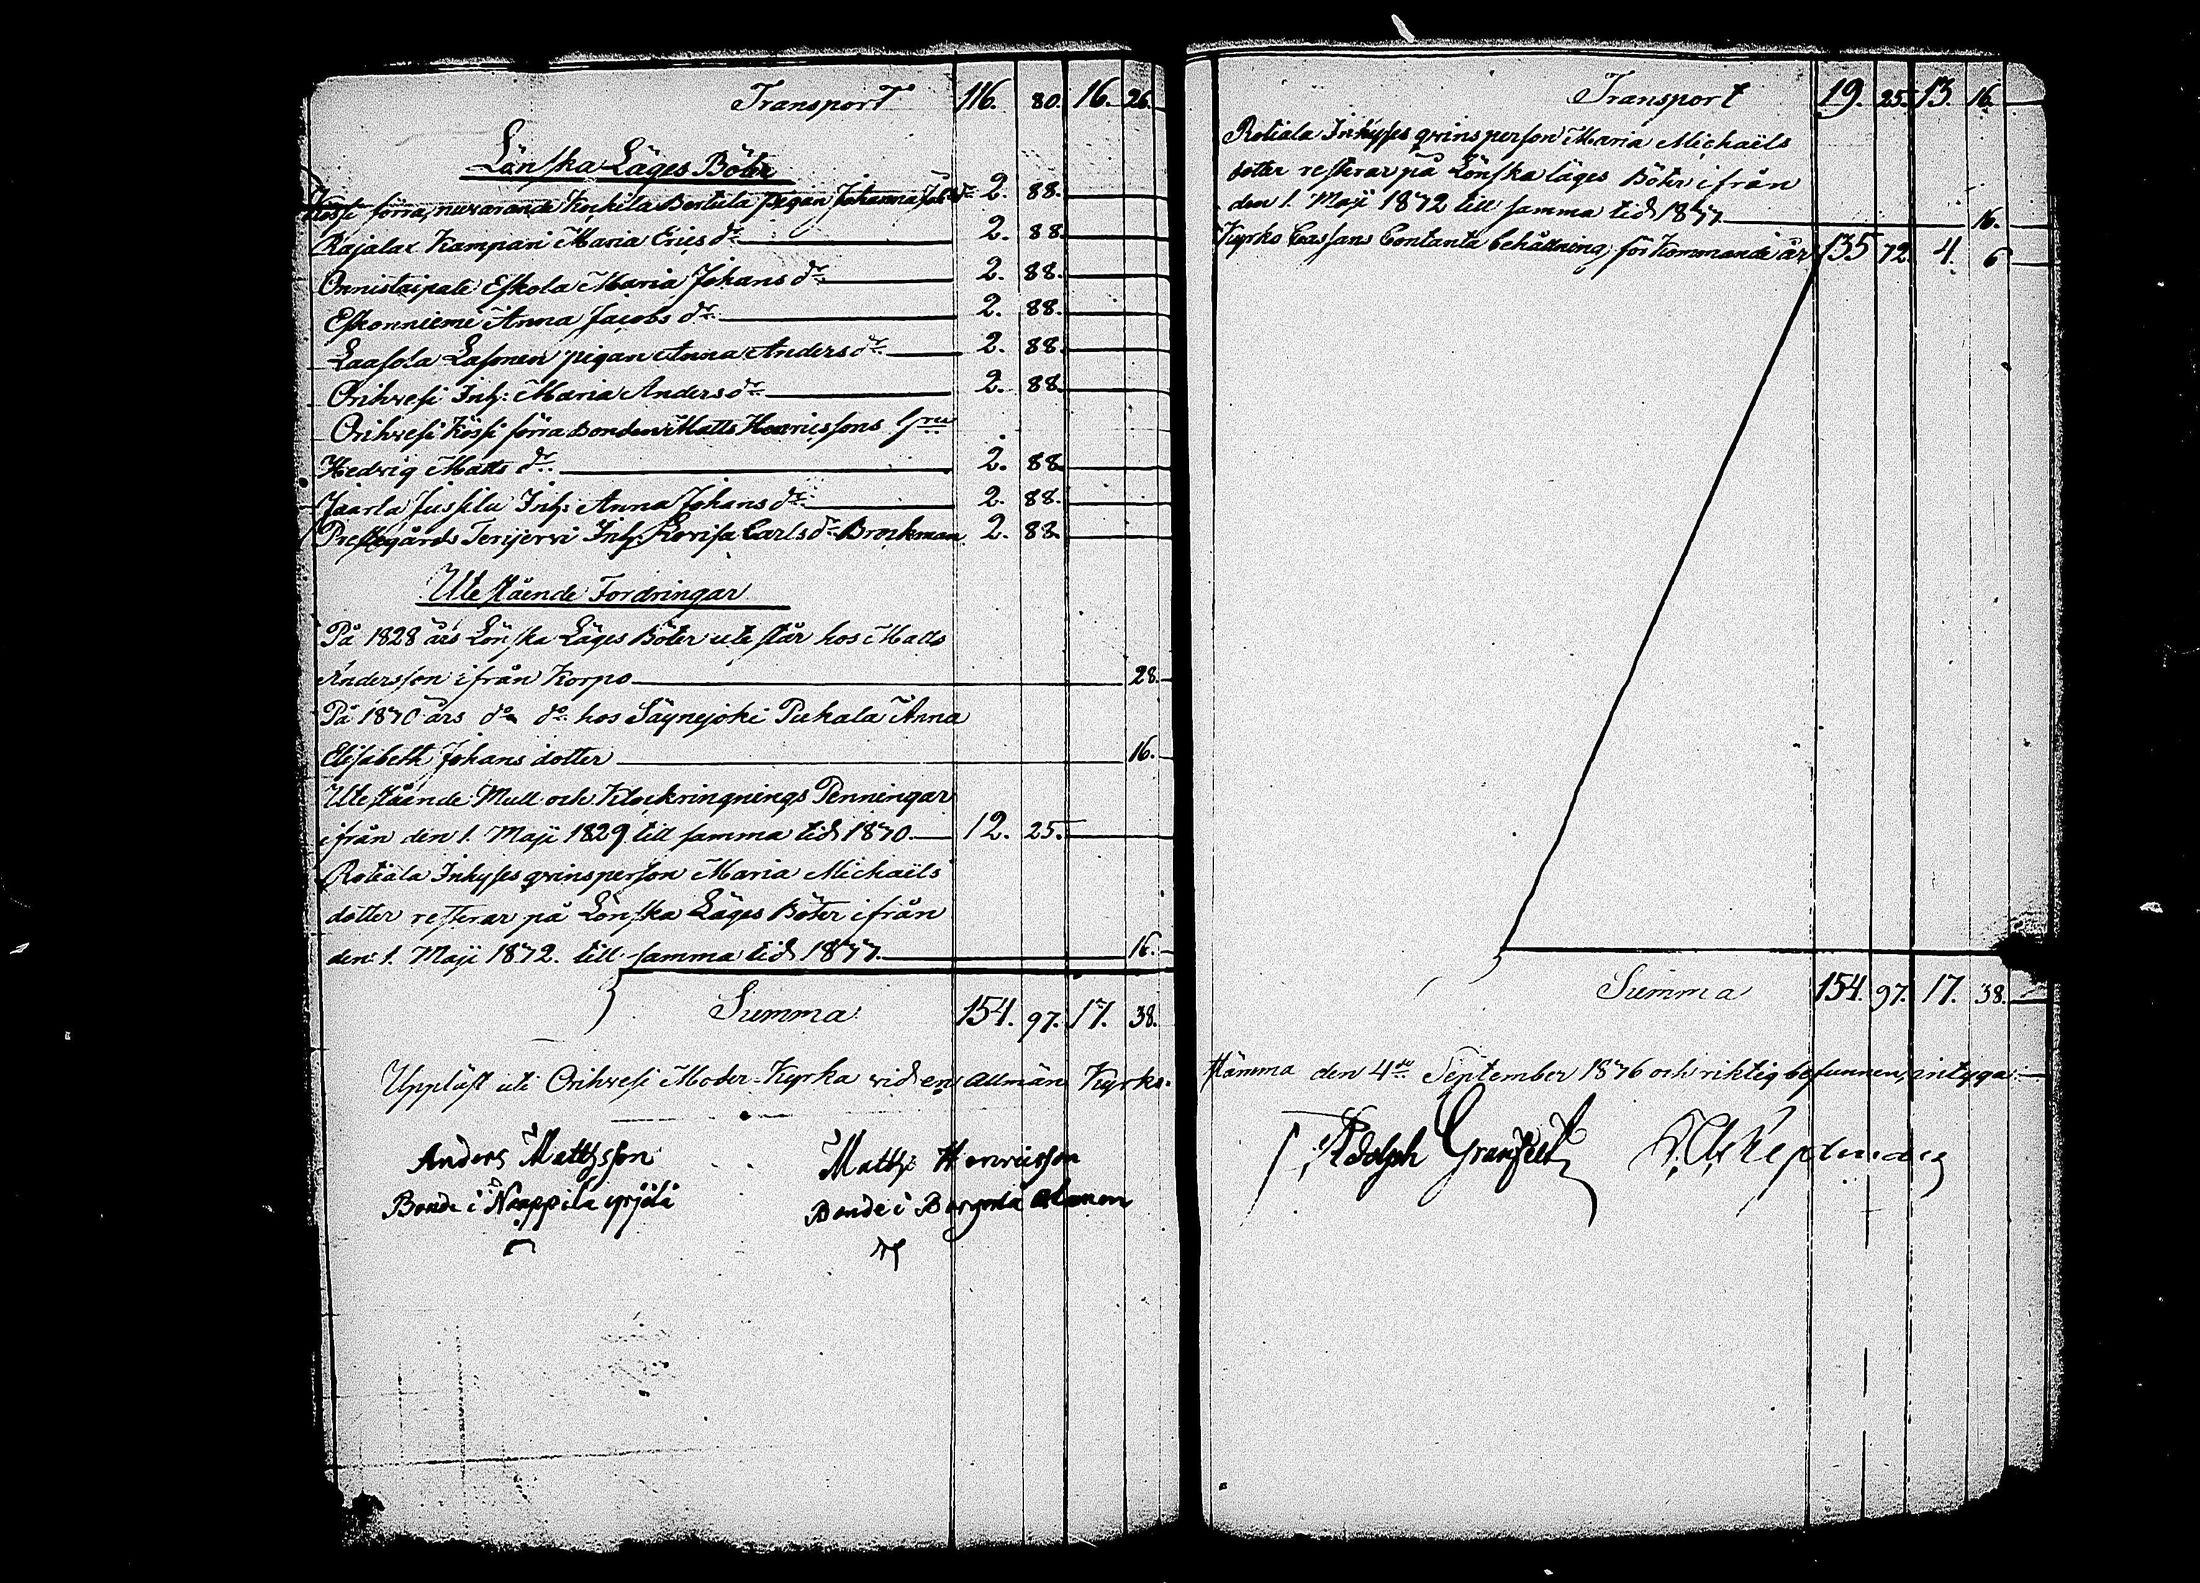 Transport 116. 80. 16. 26.
Lönska Läges Böter
Kossi förra, nuvarande Kockila Bertula pigan Johanna Jac: dr 2. 88.
Rajalax Kampari Maria Erics dr 2. 88.
Onnistaipale Eskola Maria Johans dr 2. 88.
Eskonniemi Anna Jacobs dr 2. 88.
Laasola Lasonen pigan Anna Anders dr 2. 88.
Orihvesi Inh: Maria Anders dr 2. 88.
Orihvesi Kossi förra Bonden Matts Henricssons
Hedvig Matts dr 2. 88.
Jaarla Jussila Inh: Anna Johans dr 2. 88.
Prestegårds Terijervi Inh: Lovisa Carls dr Brockman 2. 88.
Utestående Fordringar
På 1828 års Lönska Läges Böter utestår hos Matts
Andersson ifrån Korpo 28.
På 1870 års do do hos Säynejoki Pukala Anna
Elisabeth Johans dotter 16.
Utestående Mull och Klockringnings Penningar
ifrån den 1. Maji 1829 till samma tid 1870. 12. 25.
Rotiala Inhyses qvinsperson Maria Michaëls
dotter resterar på Lönska Läges Böter ifrån
den 1. Maji 1872. till samma tid 1877. 16.
Summa 154. 97. 17. 38.
Uppläst uti Orihvesi Moder-Kyrka vid en Allmän Kyrko-
Anders Mattsson Matts Henricsson
Bonde i Naappila yrjölä Bonde i
Transport 19. 25. 13. 16.
Rotiala Inhyses qvinsperson Maria Michaëls
dotter resterar på Lönska läges Böter ifrån
den 1. Maji 1872 till samma tid 1877 16.
Kyrko Cassans Contanta behållning för Kommande år 135 72. 4. 6
Summa 154. 97. 17. 38.
stämma den 4de September 1876 och riktig befunnen, intyga:
Adolph Granfelt